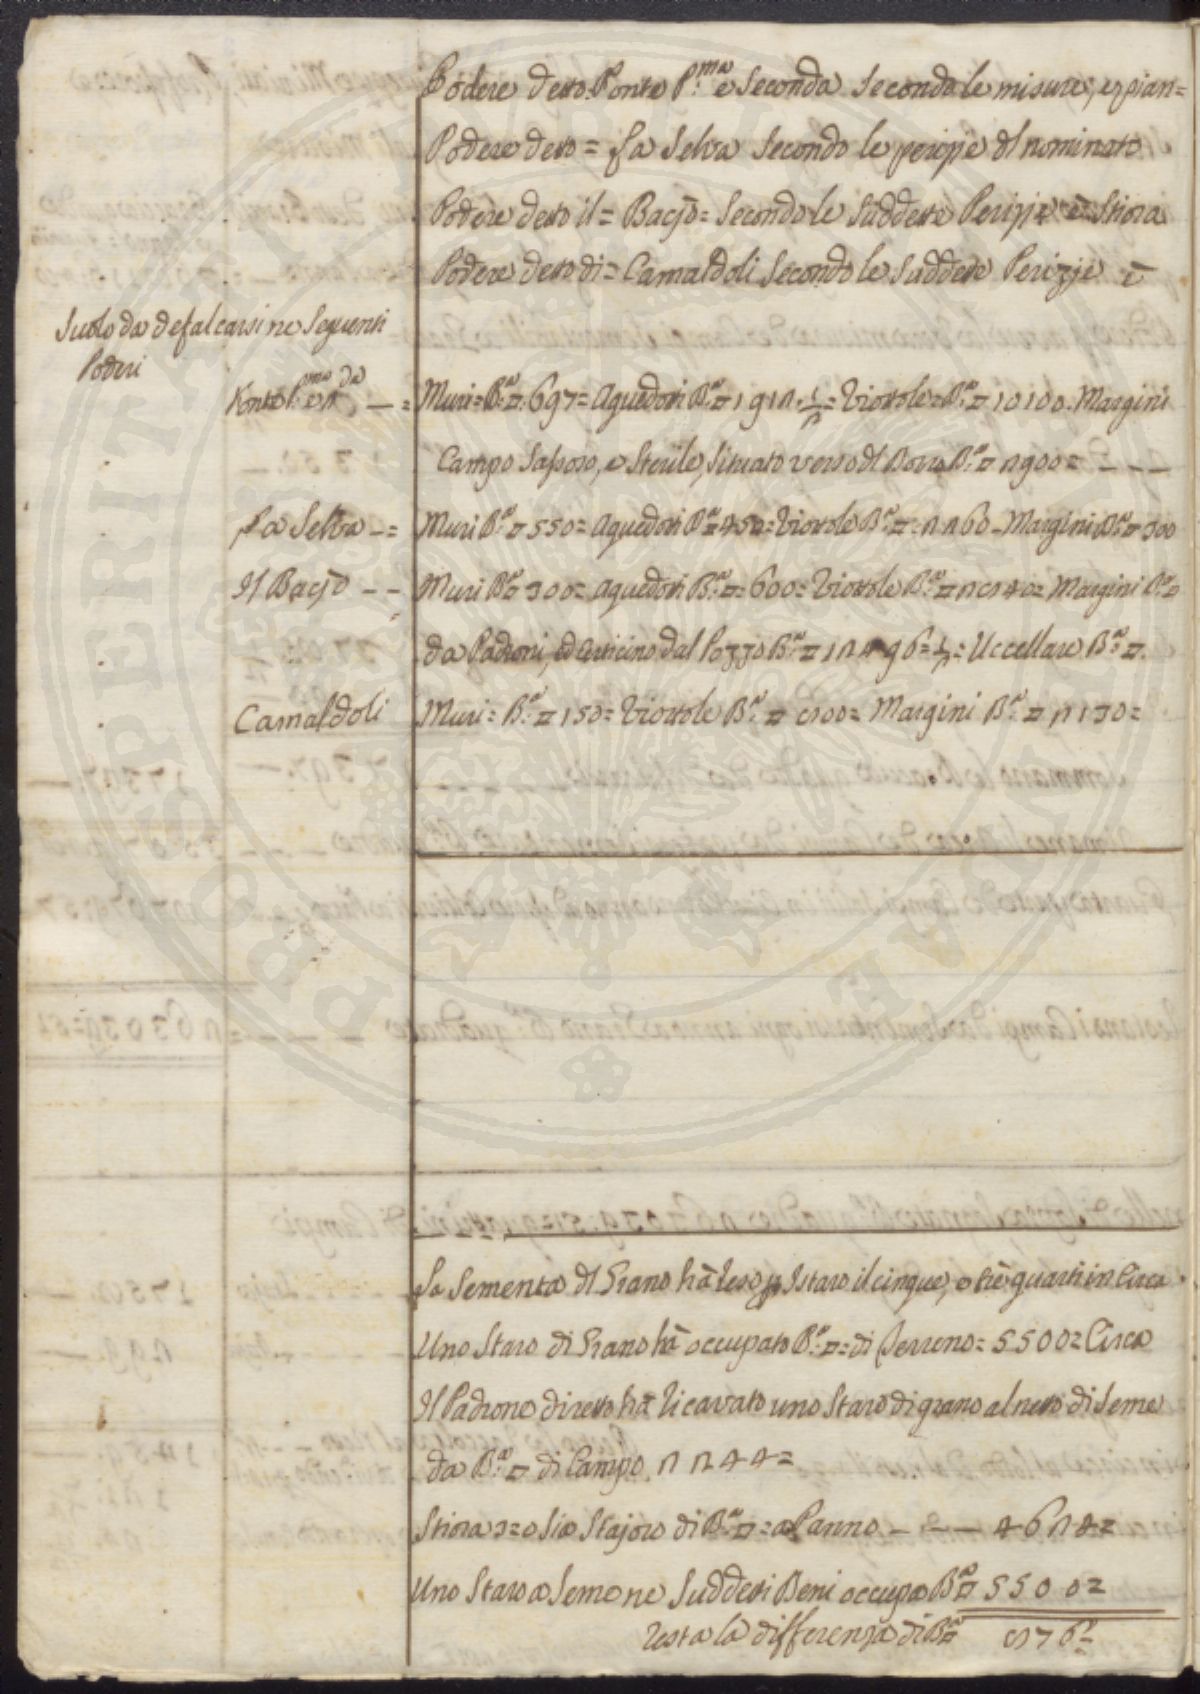 Podere detto Ponte P.ma e Seconda Secondo le misure, e pian=
Podere detto = La Selva Secondo le perizje del nominato
Podere detto il = Bacjo = Secondo le Suddette Perizje è Stiora
Podere detto di = Camaldoli Secondo le Suddette Perizje è
Suolo da defalcarsi ne Seguenti
Poderi
Ponte P.ma e 2.da — = Muri = B.a □ 697 = Aquedotti B.a □ 1912 ½ = Viottole = B.a □ 10100. Margini
Campo Sassoso, e Sterile, Situato verso del B.a □ 2900 = - - -
La Selva - = Muri B.a □ 550 = Aquedotti B.a □ 450 = Viottole B.a □ 2260 - Margini B.a □ 300
Il Bacjo - - Muri B.a □ 300 = Aquedotti B.a □ = 600 = Viottole B.a □ = Margini B.a □
da Padroni, ed Orticino dal Pozzo B.a □ = ½ = Uccellare B.a □
Camaldoli Muri = B.a □ 150 = Viottole B.a □ 800 = Margini B.a □ 2130 =
La Sementa del Grano hà reso p Istaro il cinque, e trè quarti in Circa
Uno Staro di Grano hà occupato B.a □ = di Terreno = 5500 = Circa
Il Padrone diretto hà Ricavato uno Staro di grano al netto di Seme
da B.a □ di Campo 2244 =
Stiora 3 = o Sia Stajoro di B.a □ = a Panno - - - 4624 =
Uno Staro a Seme ne Suddetti Beni occupa B.a □ 5500 =
Resta la differenza di B.a □ 876 =